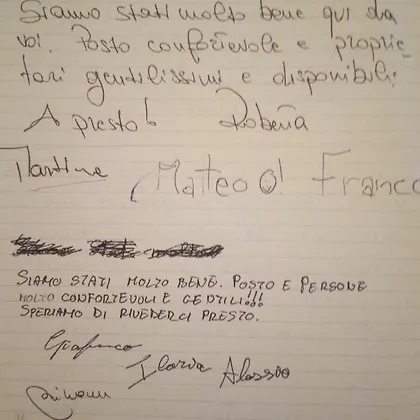 Siamo stati molto bene qui da
voi. Posto confortevole e proprie
tari gentilissimi e disponibili.
A presto! Roberta
Martina Matteo! Franco
SIAMO STATI MOLTO BENE. POSTO E PERSONE
MOLTO CONFORTEVOLI E GENTILI!!!
SPERIAMO DI RIVEDERCI PRESTO.
Ilaria Alessio